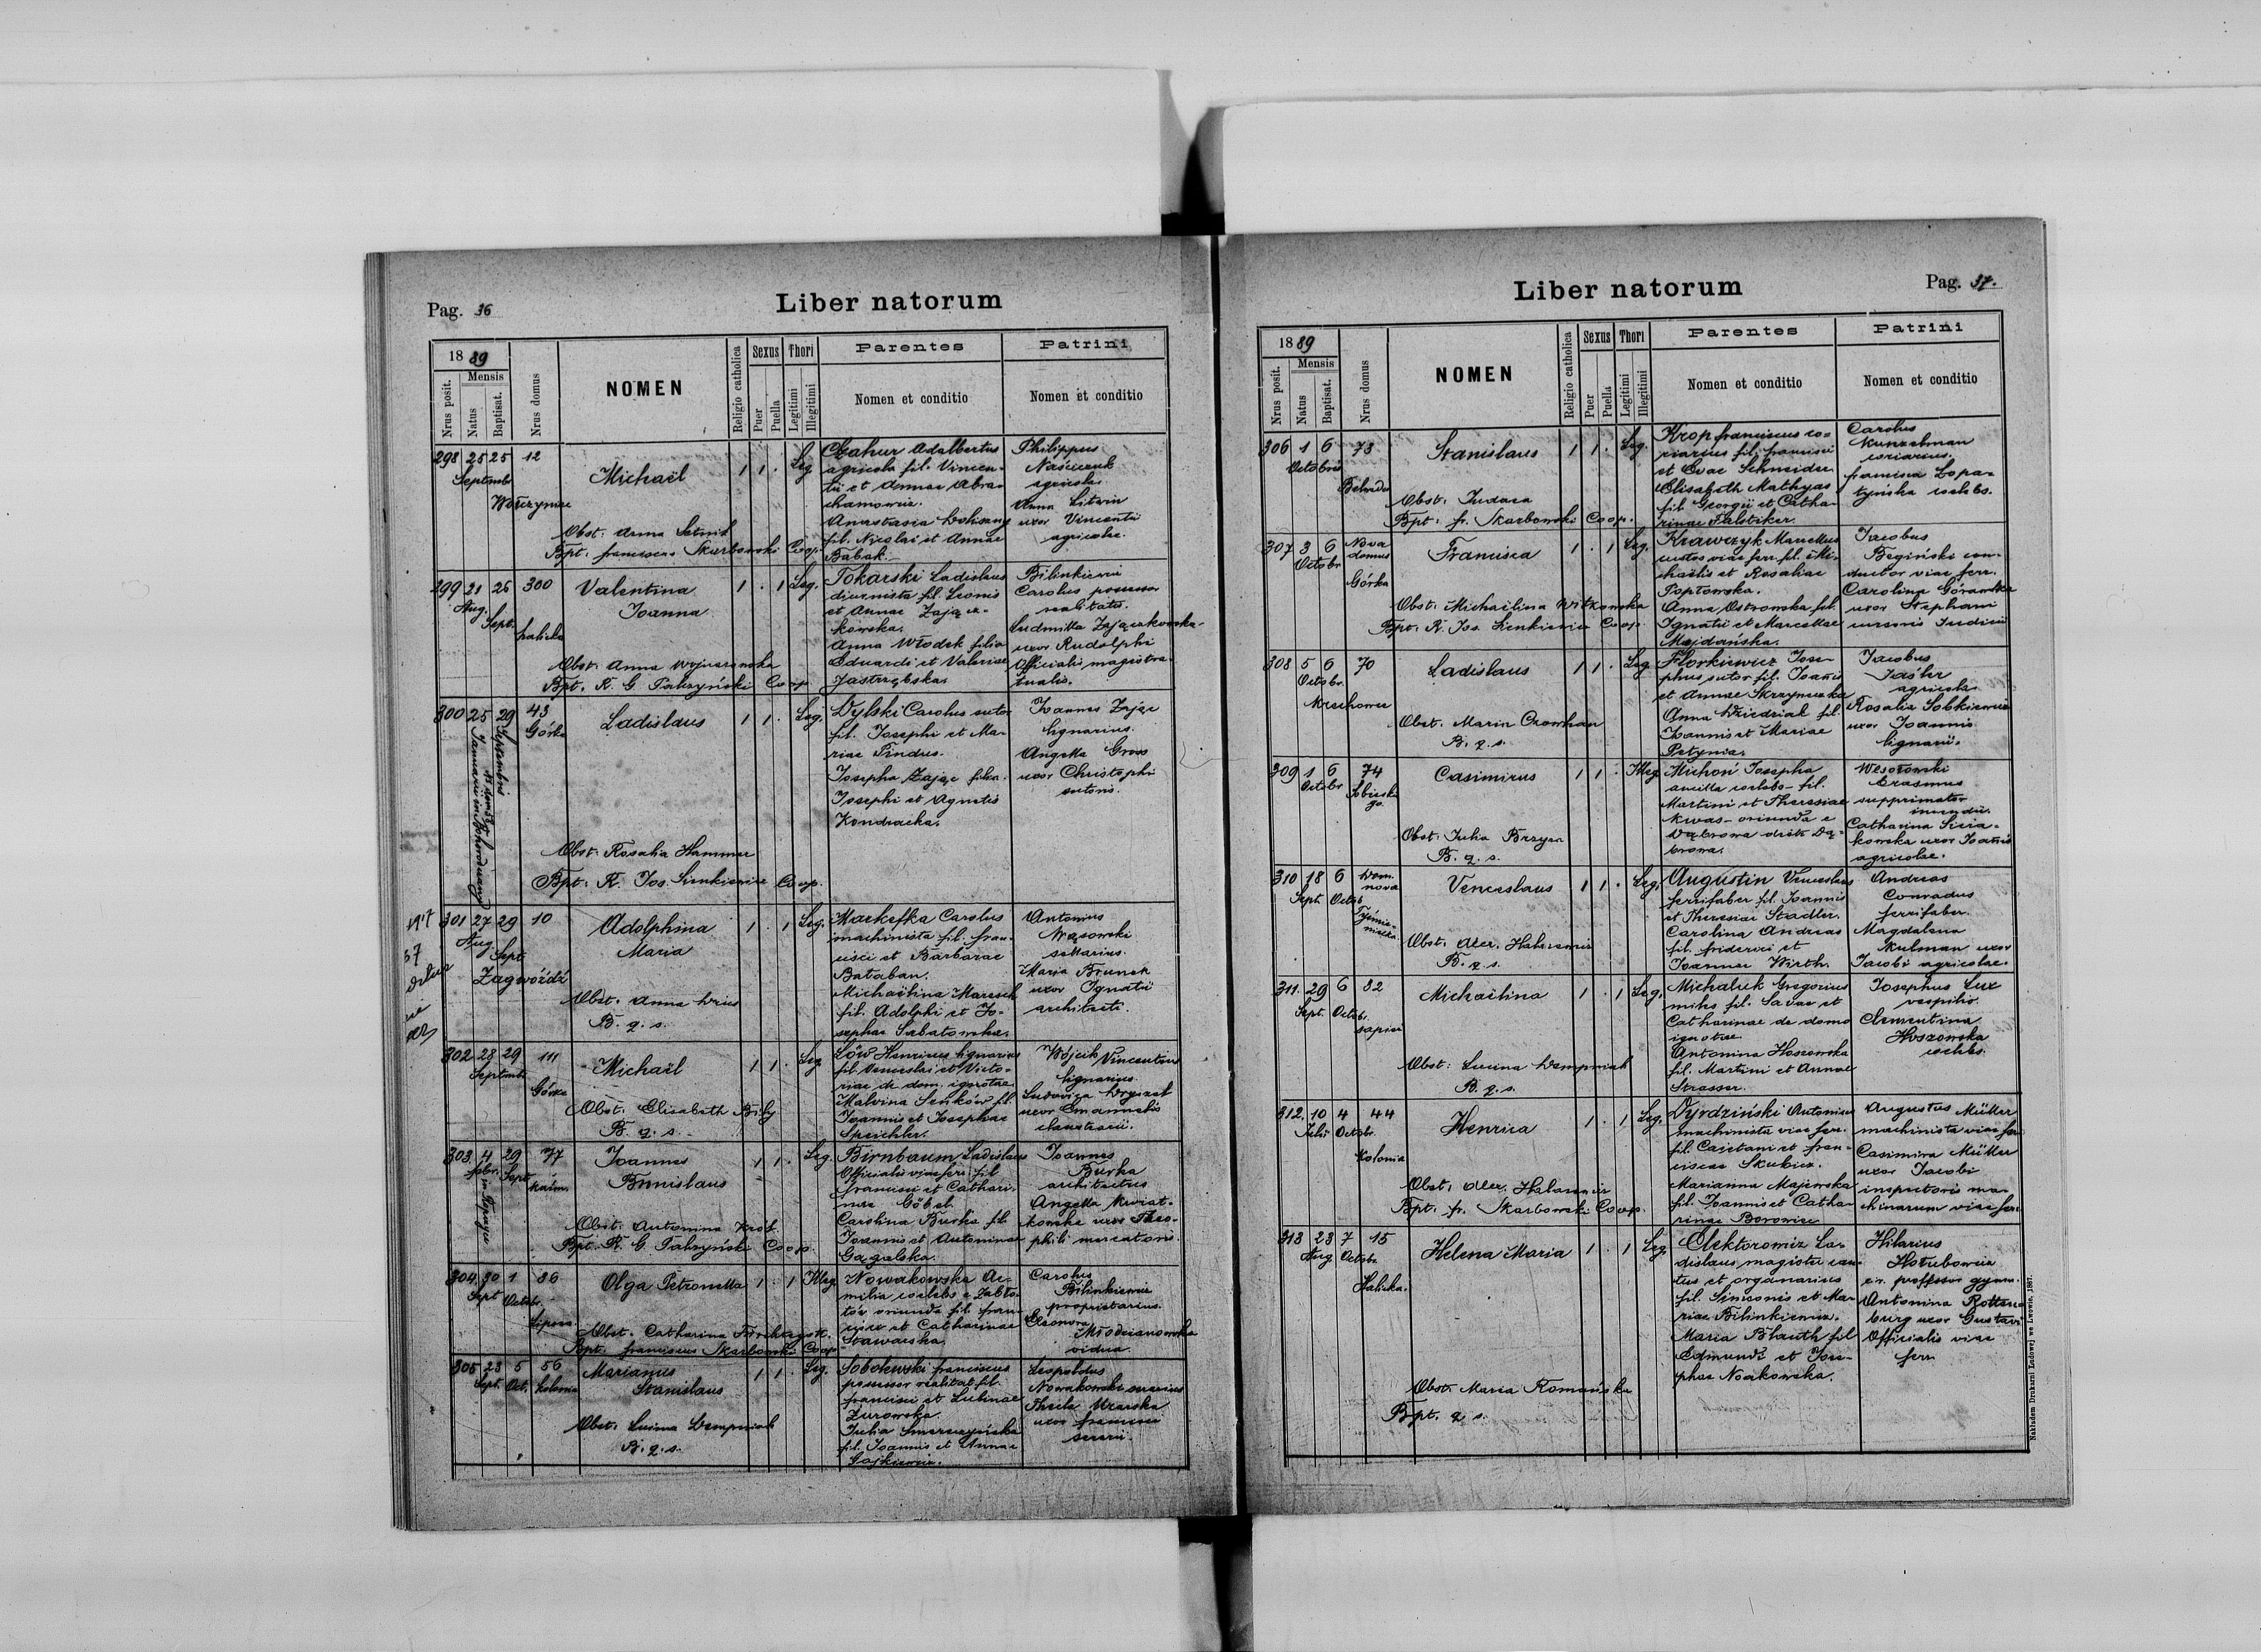 Pag. 36
Liber natorum
1889
Mensis
Nrus posit.
Natus
Baptisat.
Nrus domus
NOMEN
Religio catholica
Sexus
Puer
Puella
Thori
Legitimi
Illegitimi
Parentes
Nomen et conditio
Patrini
Nomen et conditio
298 25 25 12
Septemb
Michaël
1 1 . Leg
Adalbertus
agricola fil. Vincen-
tii et Annae Abra-
chamowicz.
Anastasia
fil. Nicolai et Annae
Babak.
Philippus
agricola
Anna Litwin
uxor Vincentii
agricolae.
Obst. Anna Setnik
Bpt. franciscus Skarbowski Coop.
299 21 26 300
Aug. Sept.
halicka
Valentina
Joanna
1 . 1 Leg.
Tokarski Ladislaus
diurnista fil. Leonis
et Annae Zając-
kowska.
Anna Włodek filia
Eduardi et Valeriae
Jastrzębska.
Bilinkiewicz
Carolus possessor
realitatis.
Ludmilla Zajączkowska
uxor Rudolphi
Officialis magistra-
tualis.
Obst. Anna
Bpt. R. G. Coop
300 25 29 43
Górka
Septembris
Ladislaus
1 1 . Leg.
Dylski Carolus sutor
fil. Josephi et Ma-
riae Pindus.
Josepha Zając filia
Josephi et Agnetis
Kondracka.
Joannes Zając
lignarius.
Angella Gross
uxor Christophi
sutoris.
Obst. Rosalia Hammer
Bpt. R. Jos. Sienkiewicz Coop.
301 27 29 10
Aug. Sept
Zagwóźdź
Adolphina
Maria
1 . 1 Leg.
Markefka Carolus
machinista fil. fran-
cisci et Barbarae
Bataban.
Michaëlina Maresch
fil. Adolphi et Jo-
sephae Sabatowska.
Antonius
sellarius.
Maria Brunek
uxor Ignatii
architecti.
Obst. Anna
B. q. s.
302 28 29 111
Septemb
Górka
Michaël
1 1 . Leg
Löw Henricus lignarius
fil. Venceslai et Victo-
riae de dom. ignotae
Malvina Seńków fil.
Joannis et Josephae
Speichler.
Wójcik Vincentius
lignarius.
Ludovica
uxor Emanuelis
claustrarii.
Obst. Elisabeth Bily
B. q. s.
303 4 29 77
febr. Sept
Joannes
Bronislaus
1 1 . Leg.
Birnbaum Ladislaus
Officialis viae ferr. fil.
francisci et Cathari-
nae Göbel.
Carolina Burka fil.
Joannis et Antoninae
Gągalska.
Joannes
Burka
architectus
Angella Kwiat-
kowska uxor Theo-
phili mercatoris.
Obst. Antonina Król
Bpt. R. G. Coop.
304 30 1 86
Sept Octob.
Lipowa
Olga Petronella
1 . 1 Illeg
Nowakowska Ae-
milia coelebs e Zabło-
tów oriunda fil. fran-
cisci et Catharinae
Stawarska.
Carolus
Bilinkiewicz
proprietarius.
Eleonora
Młodzianowska
vidua.
Obst. Catharina
Bpt. franciscus Skarbowski Coop
305 23 5 56
Sept. Oct. kolonia
Marianus
Stanislaus
1 1 . Leg.
Sobolewski franciscus
possessor realitat fil.
francisci et
Żurowska
Julia
fil. Joannis et Annae
Leopoldus
Nowakowski
Thecla
uxor francisci
Obst. Lucina Dempniak
B. q. s.
Liber natorum
Pag. 37.
1889
Mensis
Nrus posit.
Natus
Baptisat.
Nrus domus
NOMEN
Religio catholica
Sexus
Puer
Puella
Thori
Legitimi
Illegitimi
Parentes
Nomen et conditio
Patrini
Nomen et conditio
306 1 6 73
Octobris
Stanislaus
1 1 . Leg.
Krop franciscus co-
riarius fil. francisci
et Evae Schneider.
Elisabeth Mathyas
fil Georgii et Catha-
rinae Falstiker.
Carolus
Kunzelman
coriarius.
francisca Łopa-
tyńska coelebs.
Obst. Judaea
Bpt. fr. Skarbowski Coop.
307 3 6 Nova
domus
Octobr
Górka
Francisca
1 . 1 Leg.
Krawczyk Marcellus
custos viae ferr. fil. Mi-
chaëlis et Rosaliae
Popłowska.
Anna Ostrowska fil.
Ignatii et Marcellae
Majdańska.
Jacobus
Begiński con-
ductor viae ferr.
Carolina Góramska
uxor Stephani
cursoris Judicii
Obst. Michaëlina Witkowska
Bpt. R. Jos. Sienkiewicz Coop
308 5 6 70
Octobr.
Ladislaus
1 1 . Leg
Florkiewicz Jose-
phus sutor fil. Joannis
et Annae
Anna Dziedziak fil.
Joannis et Mariae
Petynia.
Jacobus
agricola
Rosalia Sobkiewicz
uxor Joannis
lignarii.
Obst. Maria
B. q. s.
309 1 6 74
Octobr Sobieskie-
go.
Casimirus
1 1 . Illeg
Michoń Josepha
ancilla coelebs fil.
Martini et Theresiae
Kwas oriunda e
Dąbrowa distr. Dą-
browa.
Wesołowski
Erasmus
supprimator
incendii.
Catharina
uxor Joannis
agricolae.
Obst. Julia
B. q. s.
310 18 6 Dom.
nova
Sept. Octob.
Tyśmie-
nicka
Venceslaus
1 1 . Leg.
Augustin Venceslaus
ferrifaber fil. Joannis
et Theresiae Stadler.
Carolina Andreas
fil. friderici et
Joannae Wirth.
Andreas
Conradus
ferrifaber.
Magdalena
Kulman uxor
Jacobi agricolae.
Obst. Alex.
B. q. s.
311. 29 6 82
Sept. Octob.
Michaëlina
1 . 1 Leg.
Michaluk Gregorius
miles fil. Savae et
Catharinae de domo
ignotae.
Antonina Hoszowska
fil. Martini et Annae
Strasser.
Josephus Lux
vespilio.
Clementina
Hoszowska
coelebs.
Obst. Lucina Dempniak
B. q. s.
312. 10 4 44
Julii Octob.
Kolonia
Henrica
1 . 1 Leg.
Dyrdziński Antonius
machinista viae ferr.
fil. Caietani et fran-
ciscae Skubisz.
Marianna Majewska
fil. Joannis et Catha-
rinae
Augustus Müller
machinista viae fer.
Casimira Müller
uxor Jacobi
inspectoris ma-
chinarum viae fer.
Obst. Alex.
Bpt. fr. Skarbowski Coop.
313 23 7 15
Aug Octobr.
Halicka.
Helena Maria
1 . 1 Leg
Elektorowicz La-
dislaus magister can-
tus et organarius
fil. Simeonis et Ma-
riae Bilinkiewicz.
Maria Blauth fil
Edmundi et Jose-
phae Noakowska.
Hilarius
Hołubowicz
professor gymn.
Antonina Rotten-
burg uxor Gustavi
Officialis viae
ferr.
Obst. Maria Romańska
Bpt. q. s.
Nakładem Drukarni Ludowej we Lwowie, 1887.